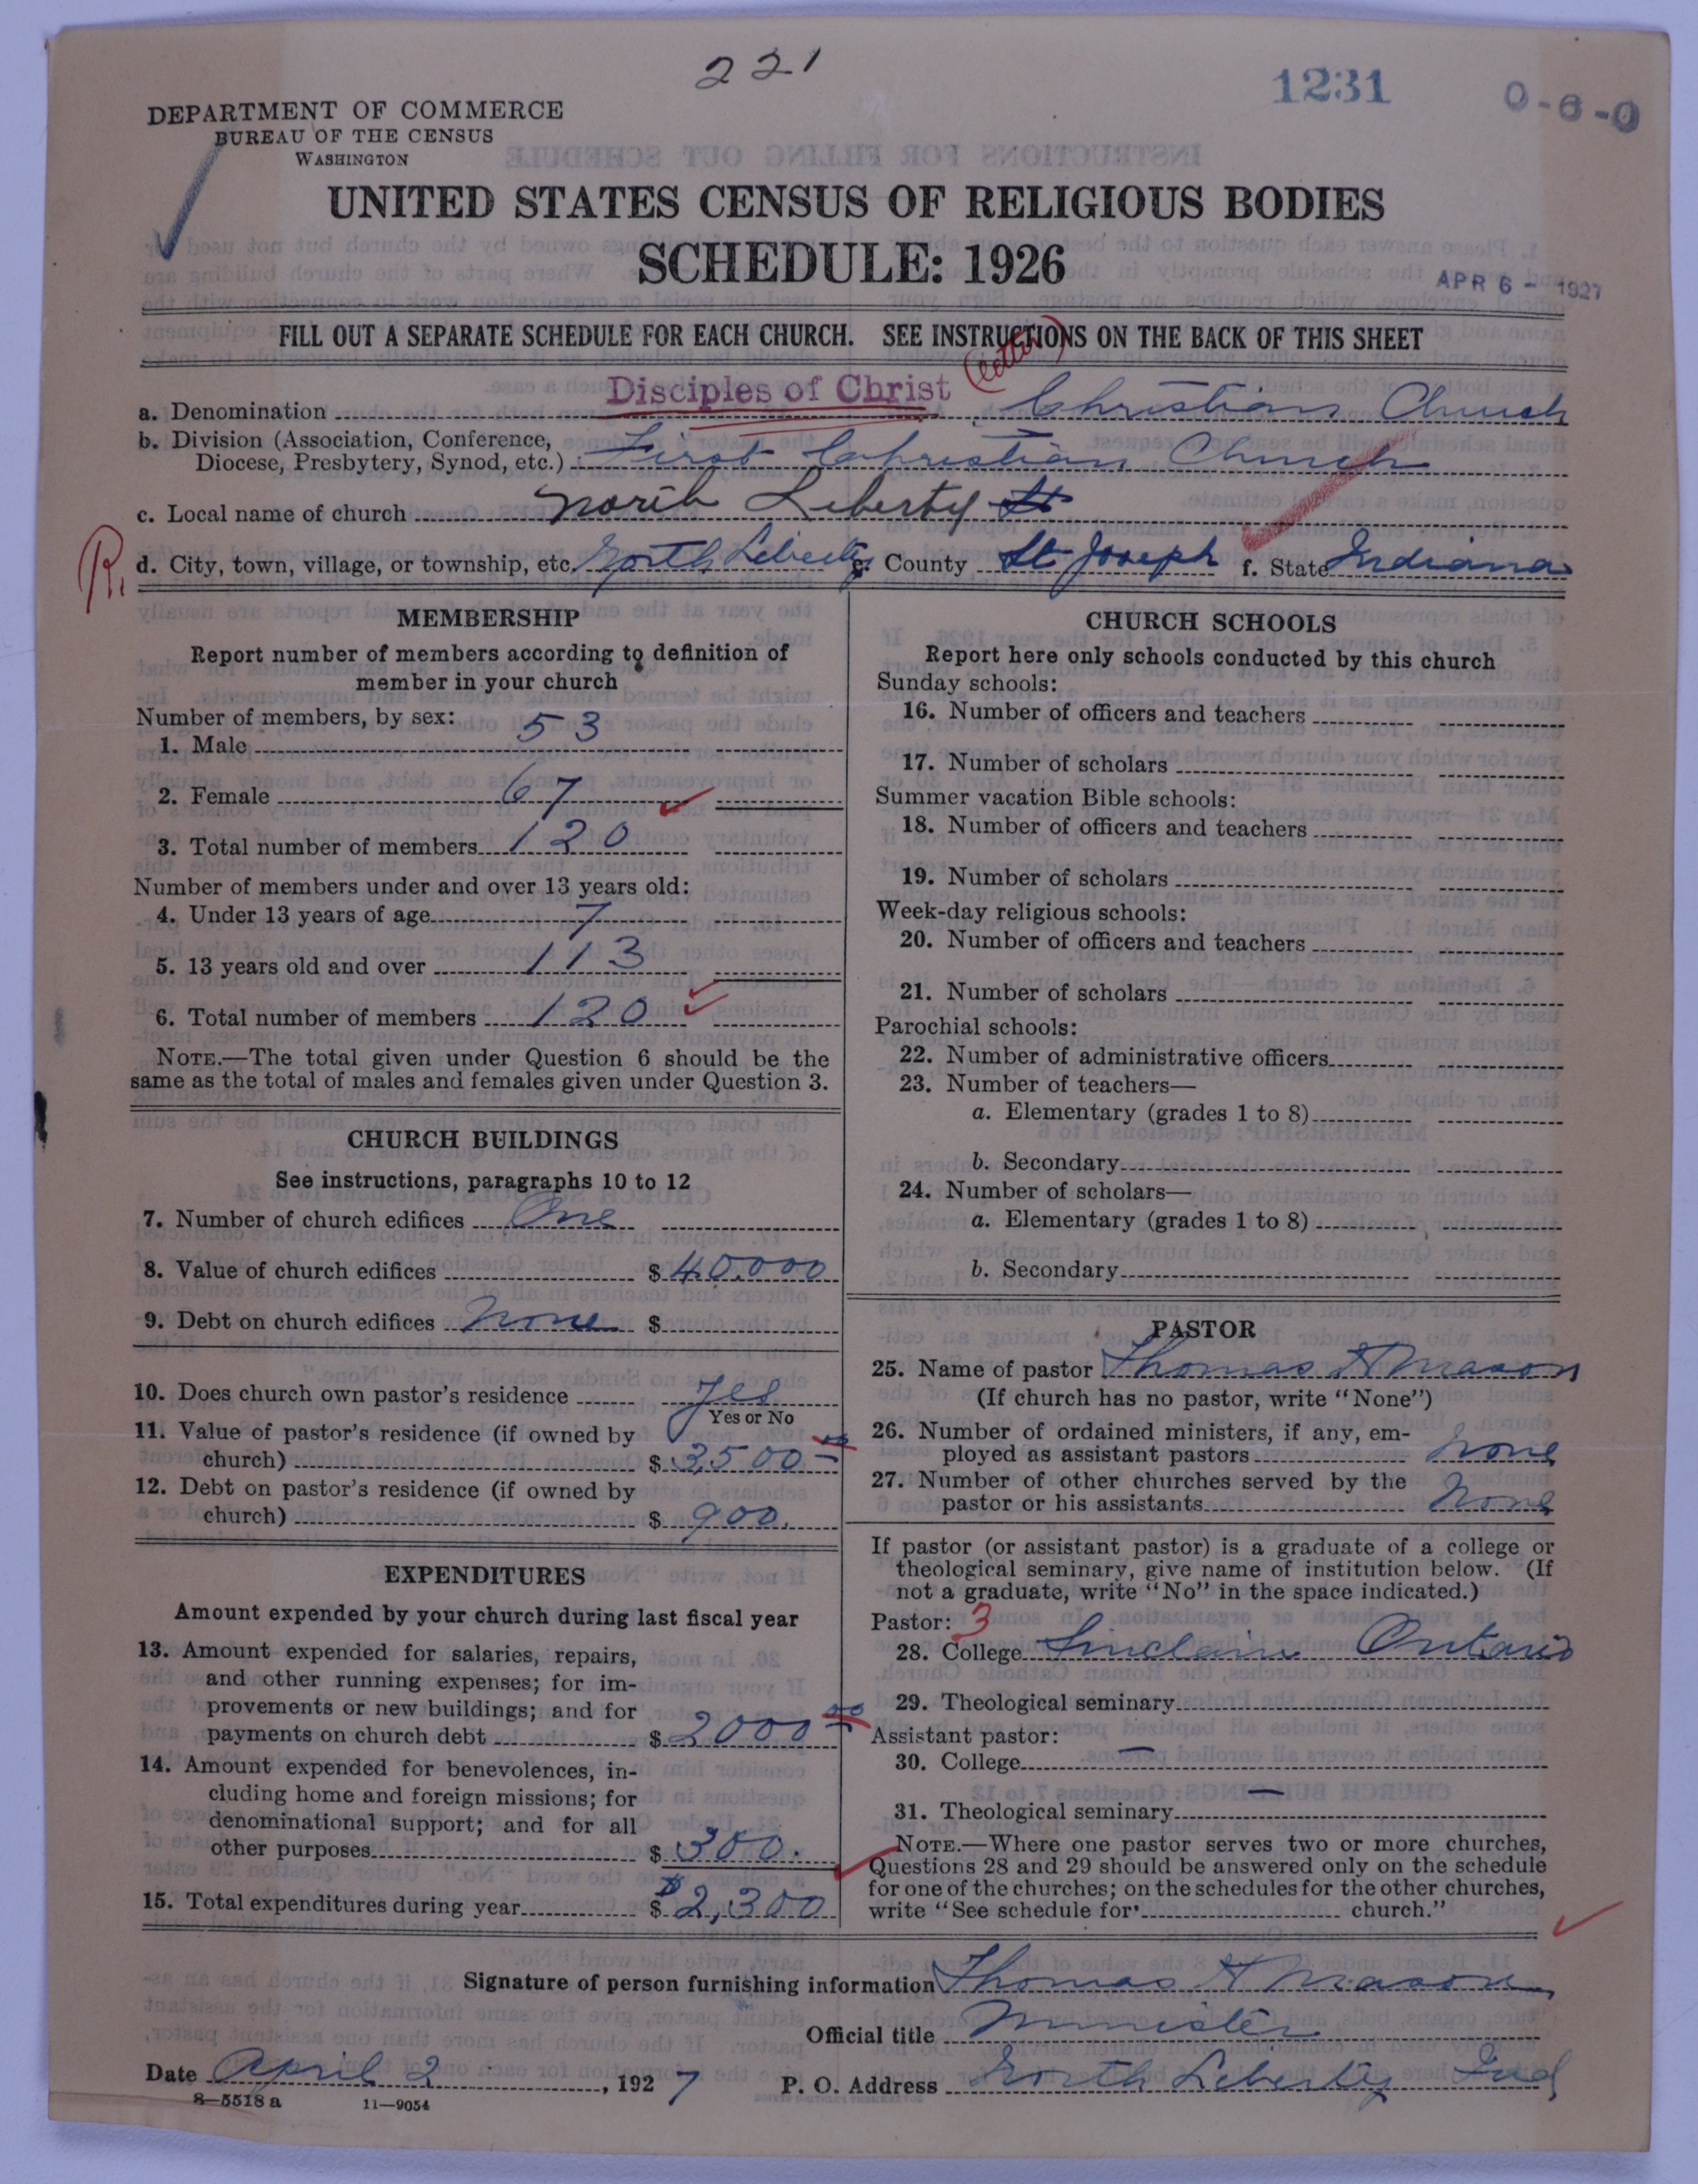 221
1231
0-6-0
DEPARTMENT OF COMMERCE
BUREAU OF THE CENSUS
WASHINGTON
UNITED STATES CENSUS OF RELIGIOUS BODIES
SCHEDULE: 1926
APR 6 - 1927
FILL OUT A SEPARATE SCHEDULE FOR EACH CHURCH. SEE INSTRUCTIONS ON THE BACK OF THIS SHEET
(letter)
a. Denomination Disciples of Christ Christian Church
b. Division (Association, Conference,
Diocese, Presbytery, Synod, etc.) First Christian Church
c. Local name of church North Liberty
R. d. City, town, village, or township, etc. North Liberty e. County St Joseph f. State Indiana
MEMBERSHIP
Report number of members according to definition of
member in your church
Number of members, by sex:
1. Male 53
2. Female 67
3. Total number of members 120
Number of members under and over 13 years old:
4. Under 13 years of age 7
5. 13 years old and over 113
6. Total number of members 120
NOTE.—The total given under Question 6 should be the
same as the total of males and females given under Question 3.
CHURCH BUILDINGS
See instructions, paragraphs 10 to 12
7. Number of church edifices One
8. Value of church edifices $ 40,000
9. Debt on church edifices None $
10. Does church own pastor's residence Yes
Yes or No
11. Value of pastor's residence (if owned by
church) $ 3500
12. Debt on pastor's residence (if owned by
church) $ 900.
EXPENDITURES
Amount expended by your church during last fiscal year
13. Amount expended for salaries, repairs,
and other running expenses; for im-
provements or new buildings; and for
payments on church debt $ 2000 00
14. Amount expended for benevolences, in-
cluding home and foreign missions; for
denominational support; and for all
other purposes $ 300.
15. Total expenditures during year $ 2,300
CHURCH SCHOOLS
Report here only schools conducted by this church
Sunday schools:
16. Number of officers and teachers
17. Number of scholars
Summer vacation Bible schools:
18. Number of officers and teachers
19. Number of scholars
Week-day religious schools:
20. Number of officers and teachers
21. Number of scholars
Parochial schools:
22. Number of administrative officers
23. Number of teachers—
a. Elementary (grades 1 to 8)
b. Secondary
24. Number of scholars—
a. Elementary (grades 1 to 8)
b. Secondary
PASTOR
25. Name of pastor Thomas H Mason
(If church has no pastor, write "None")
26. Number of ordained ministers, if any, em-
ployed as assistant pastors None
27. Number of other churches served by the
pastor or his assistants None
If pastor (or assistant pastor) is a graduate of a college or
theological seminary, give name of institution below. (If
not a graduate, write "No" in the space indicated.)
Pastor: 3
28. College Sinclair Ontario
29. Theological seminary
Assistant pastor:
30. College —
31. Theological seminary —
NOTE.—Where one pastor serves two or more churches,
Questions 28 and 29 should be answered only on the schedule
for one of the churches; on the schedules for the other churches,
write "See schedule for church."
Signature of person furnishing information Thomas H Mason
Official title Minister
Date April 2, 1927 P. O. Address North Liberty Ind
8—5518 a 11—9054